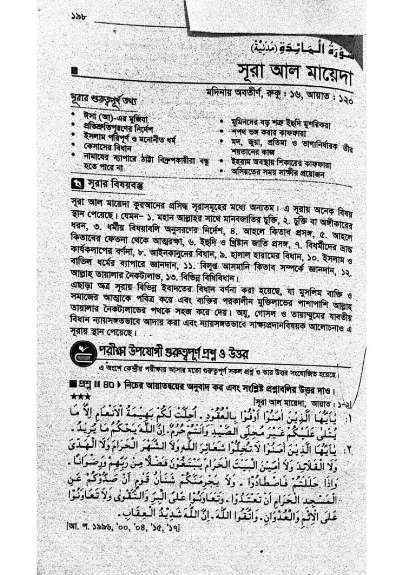 ১৯৮
سورة المائدة (مدنية)
সূরা আল মায়েদা
মদিনায় অবতীর্ণ, রুকু : ১৬, আয়াত : ১২০
সূরার গুরুত্বপূর্ণ তথ্য
ঈসা (আ)-এর মুজিযা
প্রতিশ্রুতিপূরণের নির্দেশ
ইসলাম পরিপূর্ণ ও মনোনীত ধর্ম
কেসাসের বিধান
নামাযের ব্যাপারে ঠাট্টা বিদ্রূপকারীরা বন্ধু
হতে পারে না
মুমিনদের বড় শত্রু ইহুদি মুশরিকরা
শপথ ভঙ্গ করার কাফফারা
মদ, জুয়া, প্রতিমা ও ভাগ্যনির্ধারক তীর
শয়তানের কাজ
ইহরাম অবস্থায় শিকারের কাফফারা
অসিয়তের সময় সাক্ষীর প্রয়োজন
সূরার বিষয়বস্তু
সূরা আল মায়েদা কুরআনের প্রসিদ্ধ সূরাসমূহের মধ্যে অন্যতম। এ সূরায় অনেক বিষয়
স্থান পেয়েছে। যেমন– ১. মহান আল্লাহর সাথে মানবজাতির চুক্তি, ২. চুক্তি বা অঙ্গীকারের
ধরন, ৩. ধর্মীয় বিষয়াবলি অনুসরণের নির্দেশ, ৪. আহলে কিতাব প্রসঙ্গ, ৫. আহলে
কিতাবের ফেতনা থেকে আত্মরক্ষা, ৬. ইহুদি ও খ্রিষ্টান জাতি প্রসঙ্গ, ৭. বিধর্মীদের ভ্রান্ত
কার্যকলাপের বর্ণনা, ৮. আইনকানুনের বিধান, ৯. হালাল হারামের বিধান, ১০. ইসলাম ও
বাতিল ধর্মের ব্যাপারে জ্ঞানদান, ১১. বিলুপ্ত আসমানি কিতাব সম্পর্কে জ্ঞানদান, ১২.
আল্লাহ তায়ালার নৈকট্যলাভ, ১৩. বিভিন্ন বিধিবিধান।
এছাড়া অত্র সূরায় বিভিন্ন ইবাদতের বিধান বর্ণনা করা হয়েছে, যা মুসলিম ব্যক্তি ও
সমাজের আত্মাকে পবিত্র করে এবং ব্যক্তির পরকালীন মুক্তিলাভের পাশাপাশি আল্লাহ
তায়ালার নৈকট্যলাভের পথকে সহজ করে দেয়। অযু, গোসল ও তায়াম্মুমের যাবতীয়
বিধান ন্যায়সঙ্গতভাবে আদায় করা এবং ন্যায়সঙ্গতভাবে সাক্ষ্যপ্রদানবিষয়ক আলোচনাও এ
সূরায় স্থান পেয়েছে।
পরীক্ষা উপযোগী গুরুত্বপূর্ণ প্রশ্ন ও উত্তর
এ অংশে কেন্দ্রীয় পরীক্ষায় আসার মতো গুরুত্বপূর্ণ সকল প্রশ্ন ও তার উত্তর সংযোজিত হয়েছে।
প্রশ্ন ॥ ৪০ ▶ নিচের আয়াতদ্বয়ের অনুবাদ কর এবং সংশ্লিষ্ট প্রশ্নাবলির উত্তর দাও।
★★★ [সূরা আল মায়েদা, আয়াত : ১-২]
١: يٰۤاَيُّهَا الَّذِينَ آمَنُوا أَوْفُوا بِالْعُقُودِ ـ أُحِلَّتْ لَكُمْ بَهِيمَةُ الْأَنْعَامِ إِلَّا مَا
يُتْلَى عَلَيْكُمْ غَيْرَ مُحِلِّي الصَّيْدِ وَأَنْتُمْ حُرُمٌ، إِنَّ اللّٰهَ يَحْكُمُ مَا يُرِيدُ ـ
٢: يٰۤاَيُّهَا الَّذِينَ آمَنُوا لَا تُحِلُّوا شَعَائِرَ اللّٰهِ وَلَا الشَّهْرَ الْحَرَامَ وَلَا الْهَدْيَ
وَلَا الْقَلَائِدَ وَلَا آمِّينَ الْبَيْتَ الْحَرَامَ يَبْتَغُونَ فَضْلًا مِنْ رَبِّهِمْ وَرِضْوَانًا ـ
وَإِذَا حَلَلْتُمْ فَاصْطَادُوا ـ وَلَا يَجْرِمَنَّكُمْ شَنَآنُ قَوْمٍ أَنْ صَدُّوكُمْ عَنِ
الْمَسْجِدِ الْحَرَامِ أَنْ تَعْتَدُوا ـ وَتَعَاوَنُوا عَلَى الْبِرِّ وَالتَّقْوَى وَلَا تَعَاوَنُوا
عَلَى الْإِثْمِ وَالْعُدْوَانِ ـ وَاتَّقُوا اللّٰهَ ـ إِنَّ اللّٰهَ شَدِيدُ الْعِقَابِ ـ
[আ. প. ১৯৯৬, '০০, '০৪, '১৫, '১৭]